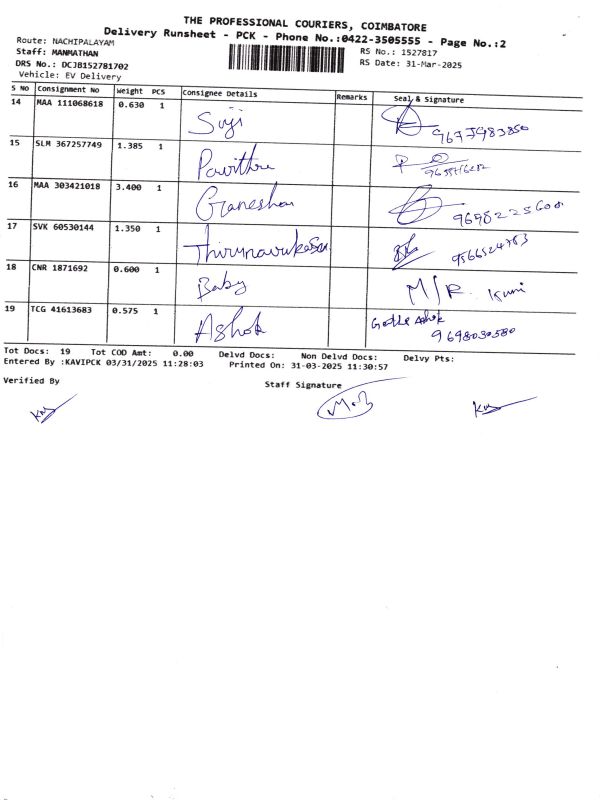 THE PROFESSIONAL COURIERS, COIMBATORE
Delivery Runsheet - PCK - Phone No.:0422-3505555 - Page No.:2
Route: NACHIPALAYAM
RS No.: 1527817
Staff: MANMATHAN
RS Date: 31-Mar-2025
DRS No.: DCJB152781702
Vehicle: EV Delivery
S No Consignment No Weight PCS Consignee Details Remarks Seal & Signature
14 MAA 111068618 0.630 1 Suji 9677983850
15 SLM 367257749 1.385 1 Pavithra
16 MAA 303421018 3.400 1 Ganeshan
17 SVK 60530144 1.350 1 Thirunavukasan 9566524783
18 CNR 1871692 0.600 1 Baby M/R
19 TCG 41613683 0.575 1 Ashok Ashok 9698030580
Tot Docs: 19 Tot COD Amt: 0.00 Delvd Docs: Non Delvd Docs: Delvy Pts:
Entered By :KAVIPCK 03/31/2025 11:28:03 Printed On: 31-03-2025 11:30:57
Verified By Staff Signature